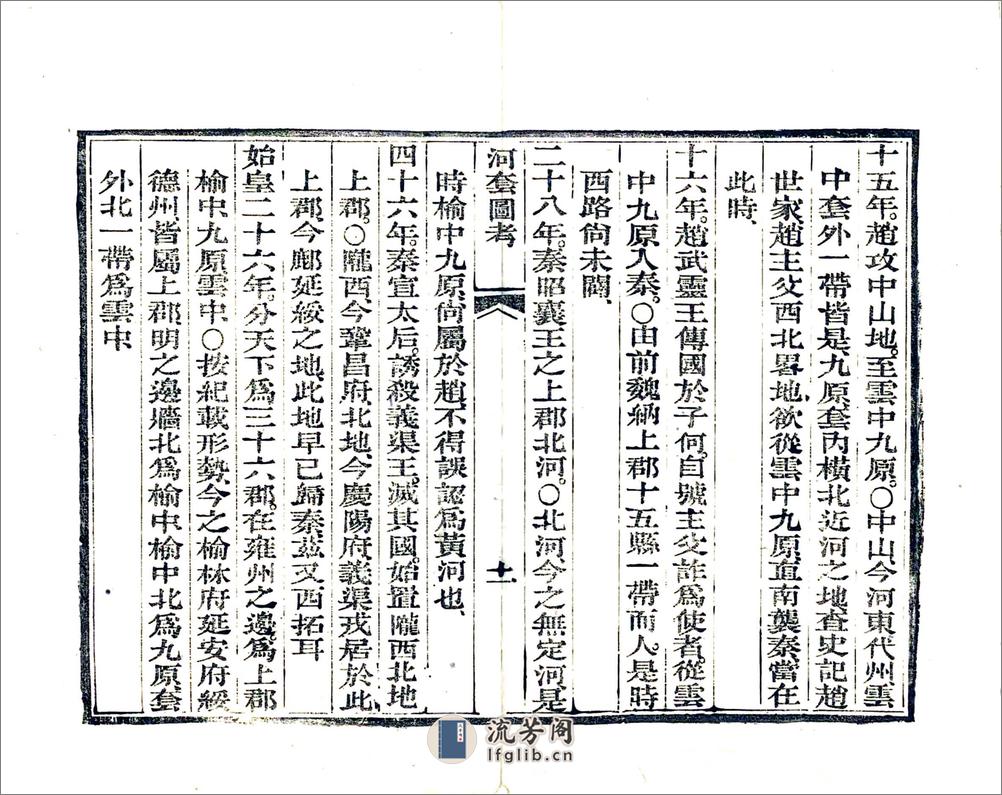 十五年。趙攻中山地。至雲中九原。〇中山、今河東代州、雲
中、套外一帶皆是、九原、套內橫北近河之地、查史記趙
世家、趙主父西北畧地、欲從雲中九原、直南襲秦、當在
此時、
十六年。趙武靈王傳國於子何。自號主父。詐爲使者。從雲
中九原入秦。〇由前魏納上郡十五縣一帶而入。是時
西路尙未闢、
二十八年。秦昭襄王之上郡北河。〇北河、今之無定河、是
河套圖考
十一
時榆中九原、尙屬於趙、不得誤認爲黃河也、
四十六年。秦宣太后。誘殺義渠王。滅其國。始置隴西北地
上郡。〇隴西、今鞏昌府、北地、今慶陽府、義渠戎居於此、
上郡、今鄜延綏之地、此地早已歸秦、茲又西拓耳
始皇二十六年。分天下爲三十六郡。在雍州之邊。爲上郡
榆中、九原雲中、〇按紀載形勢、今之榆林府延安府綏
德州、皆屬上郡、明之邊牆北爲榆中、榆中北爲九原、套
外北一帶爲雲中
流芳阁
lfglib.cn